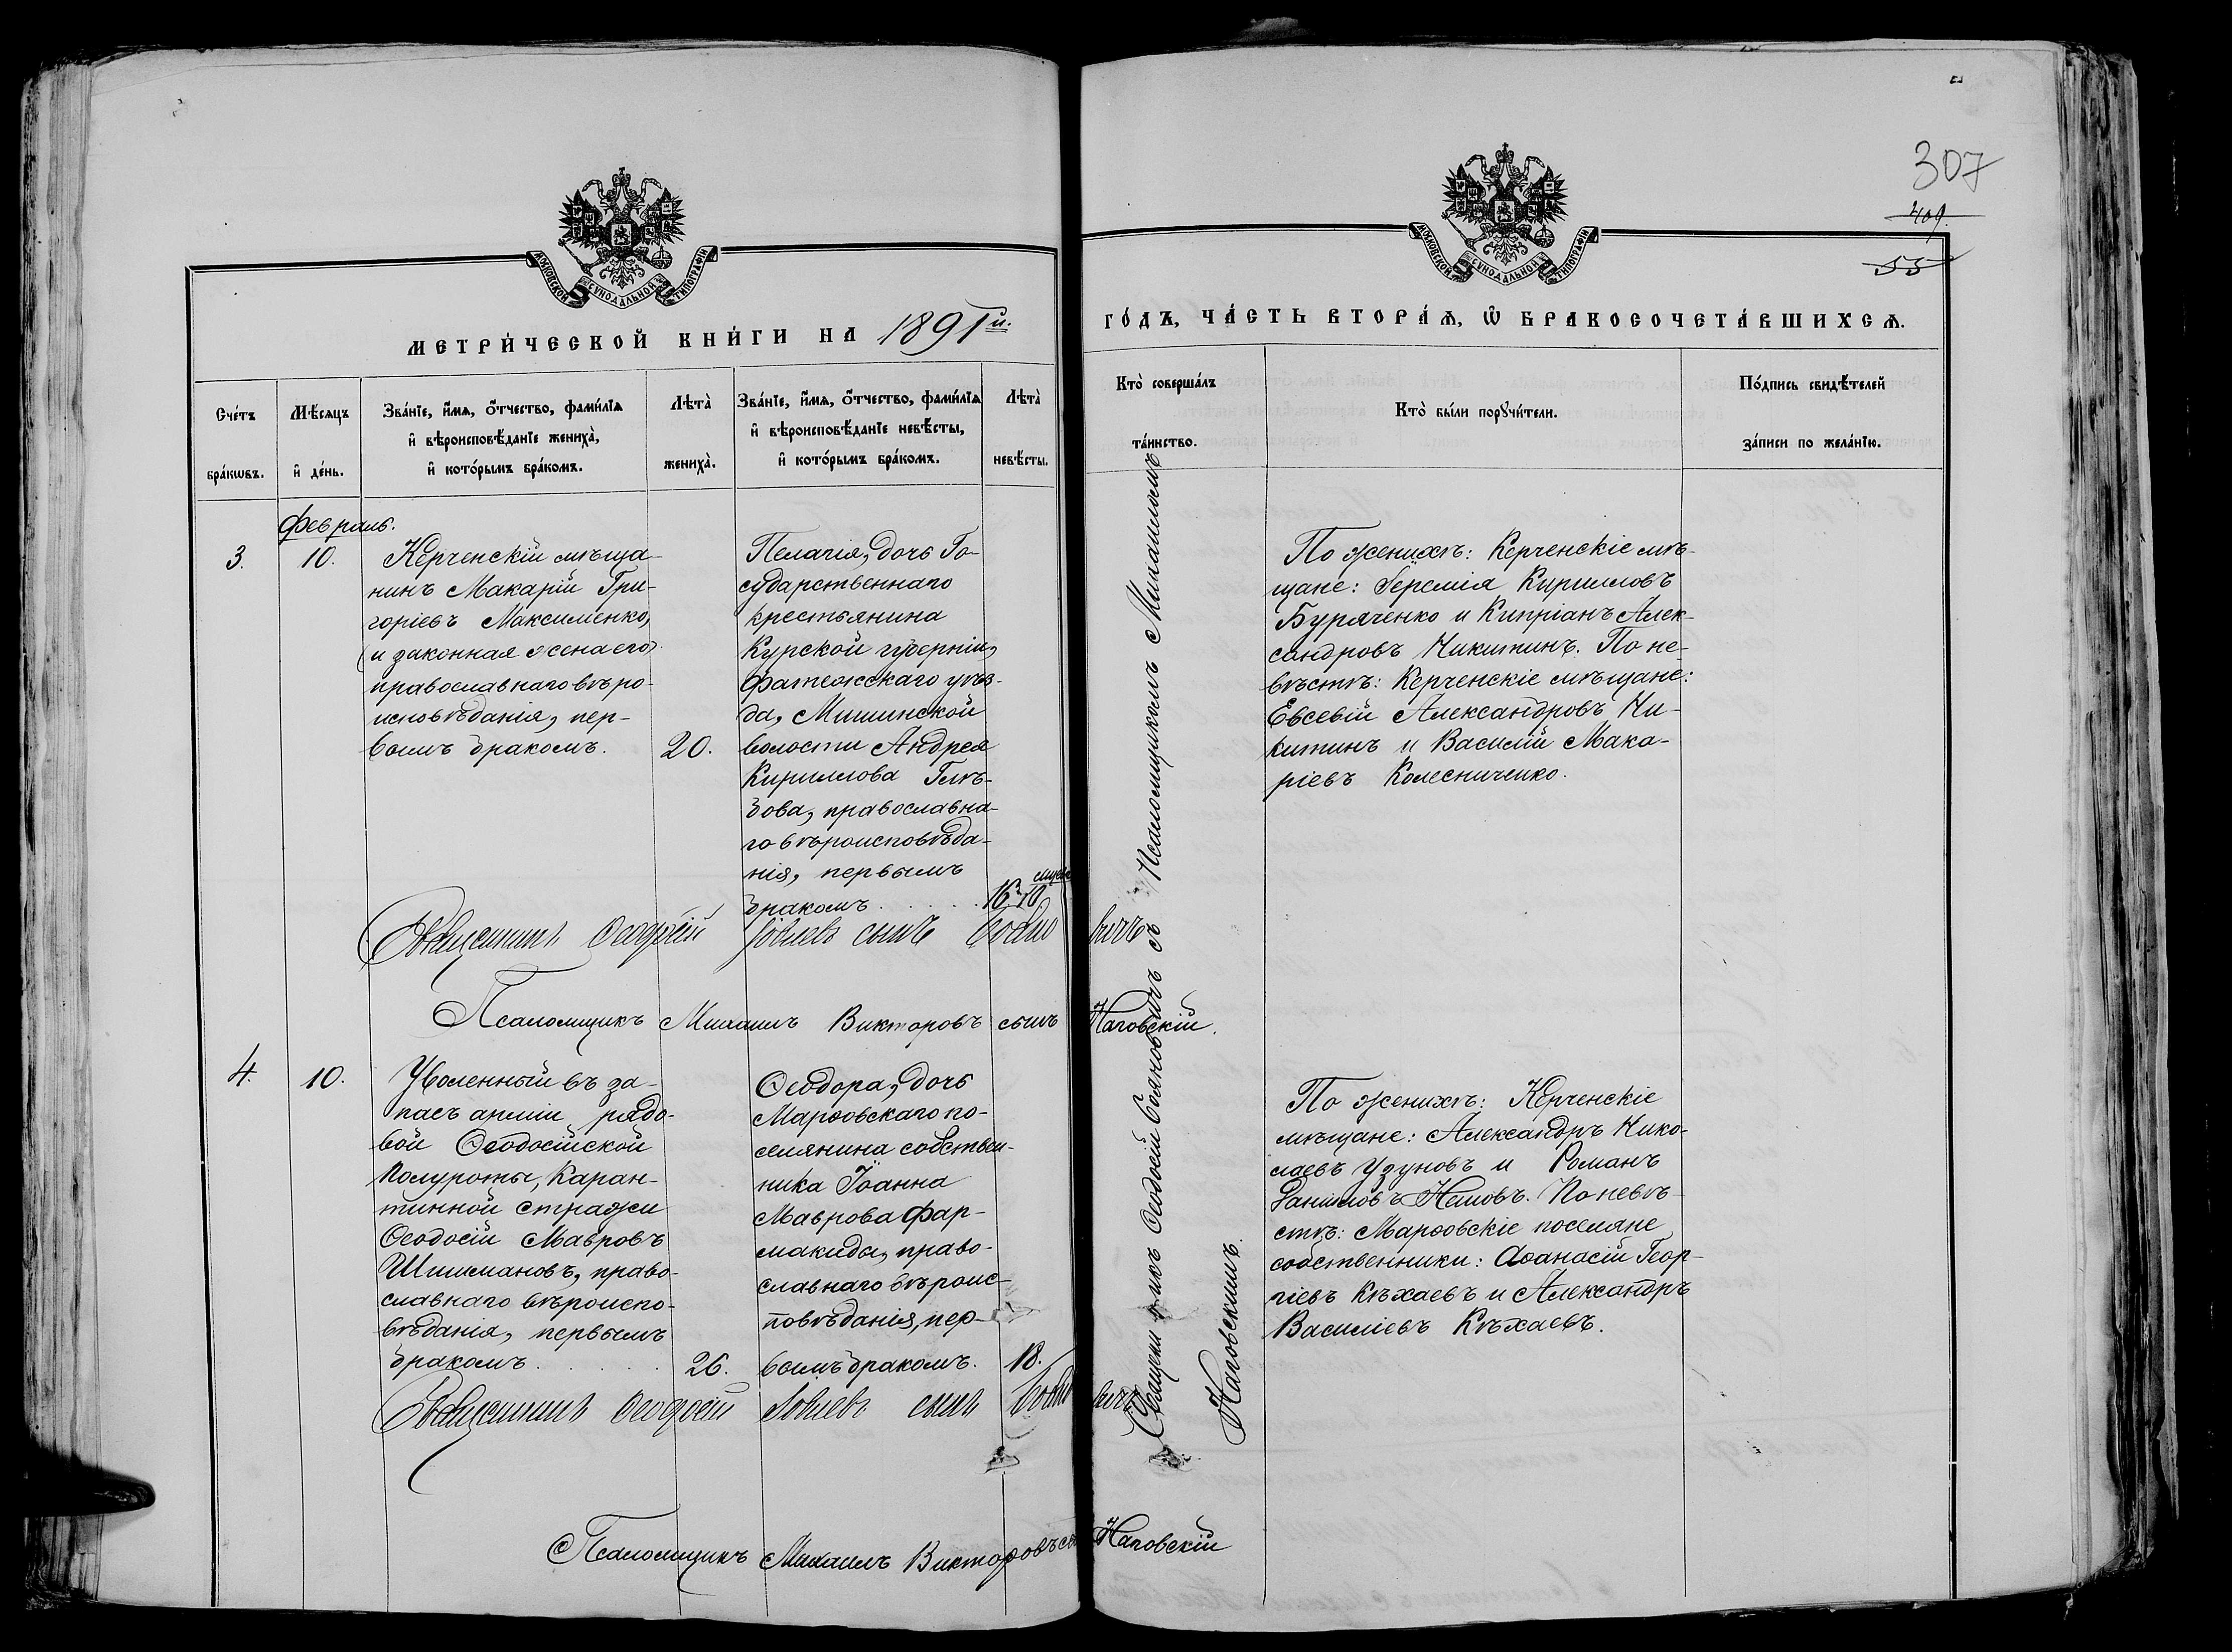 307
409.
55
МОСКОВСКОЙ СѴНОДАЛЬНОЙ ТИПОГРАФІИ
МОСКОВСКОЙ СѴНОДАЛЬНОЙ ТИПОГРАФІИ
МЕТРИ́ЧЕСКОЙ КНИ́ГИ НА 1891й.
ГО́ДЪ, ЧА́СТЬ ВТОРА́Ѧ, Ѽ БРАКОСОЧЕТА́ВШИХСѦ.
Сче́тъ
бра́кѡвъ.
Мѣ́сяцъ
и҆ де́нь.
Зва́нїе, и҆́мѧ, ѻ҆́тчество, фами́лїѧ
и҆ вѣроисповѣ́данїе жениха̀,
и҆ кото́рымъ бра́комъ.
Лѣта̀
жениха̀.
Зва́нїе, и҆́мѧ, ѻ҆́тчество, фами́лїѧ
и҆ вѣроисповѣ́данїе невѣ́сты,
и҆ кото́рымъ бра́комъ.
Лѣта̀
невѣ́сты.
Кто̀ соверша́лъ
та́инство.
Кто̀ бы́ли порꙋчи́тели.
По́дпись свидѣ́телей
за́писи по жела́нїю.
Февраль.
3.
10.
Керченскій мѣща-
нинъ Макарій Гри-
горіевъ Максименко,
(и законная жена его)
православнаго вѣро-
исповѣданія, пер-
вымъ бракомъ.
20.
Пелагія, дочь Го-
сударственнаго
крестьянина
Курской губерніи,
Фатежскаго уѣз-
да, Мишинской
волости Андрея
Кириллова Глѣ-
бова, православна-
го вѣроисповѣда-
нія, первымъ
бракомъ
16
По женихѣ: Керченскіе мѣ-
щане: Іеремія Кирилловъ
Буряченко и Кипріанъ Алек-
сандровъ Никитинъ. По не-
вѣстѣ: Керченскіе мѣщане:
Евсевій Александровъ Ни-
китинъ и Василій Мака-
ріевъ Колесниченко.
Священникъ Ѳеодосій Іовлевъ сынъ
Псаломщикъ Михаилъ Викторовъ сынъ Наговскій.
4.
10.
Уволенный въ за-
пасъ арміи рядо-
вой Ѳеодосійской
полуроты, Каран-
тинной стражи
Ѳеодосій Мавровъ
Шишмановъ, право-
славнаго вѣроиспо-
вѣданія, первымъ
бракомъ
26.
Ѳеодора, дочь
Марѳовскаго по-
селянина собствен-
ника Іоанна
Маврова Фар-
макида, право-
славнаго вѣроис-
повѣданія, пер-
вымъ бракомъ.
18.
Священникъ Ѳеодосій с Псаломщикомъ Михаиломъ
Наговскимъ.
По женихѣ: Керченскіе
мѣщане: Александръ Нико-
лаевъ Узуновъ и Романъ
Даниловъ По невѣ-
стѣ: Марѳовскіе поселяне
собственники: Аѳанасій Геор-
гіевъ Кѣхаевъ и Александръ
Василіевъ Кѣхаевъ.
Священникъ Ѳеодосій Іовлевъ сынъ
Псаломщикъ Михаилъ Викторовъ Наговскій